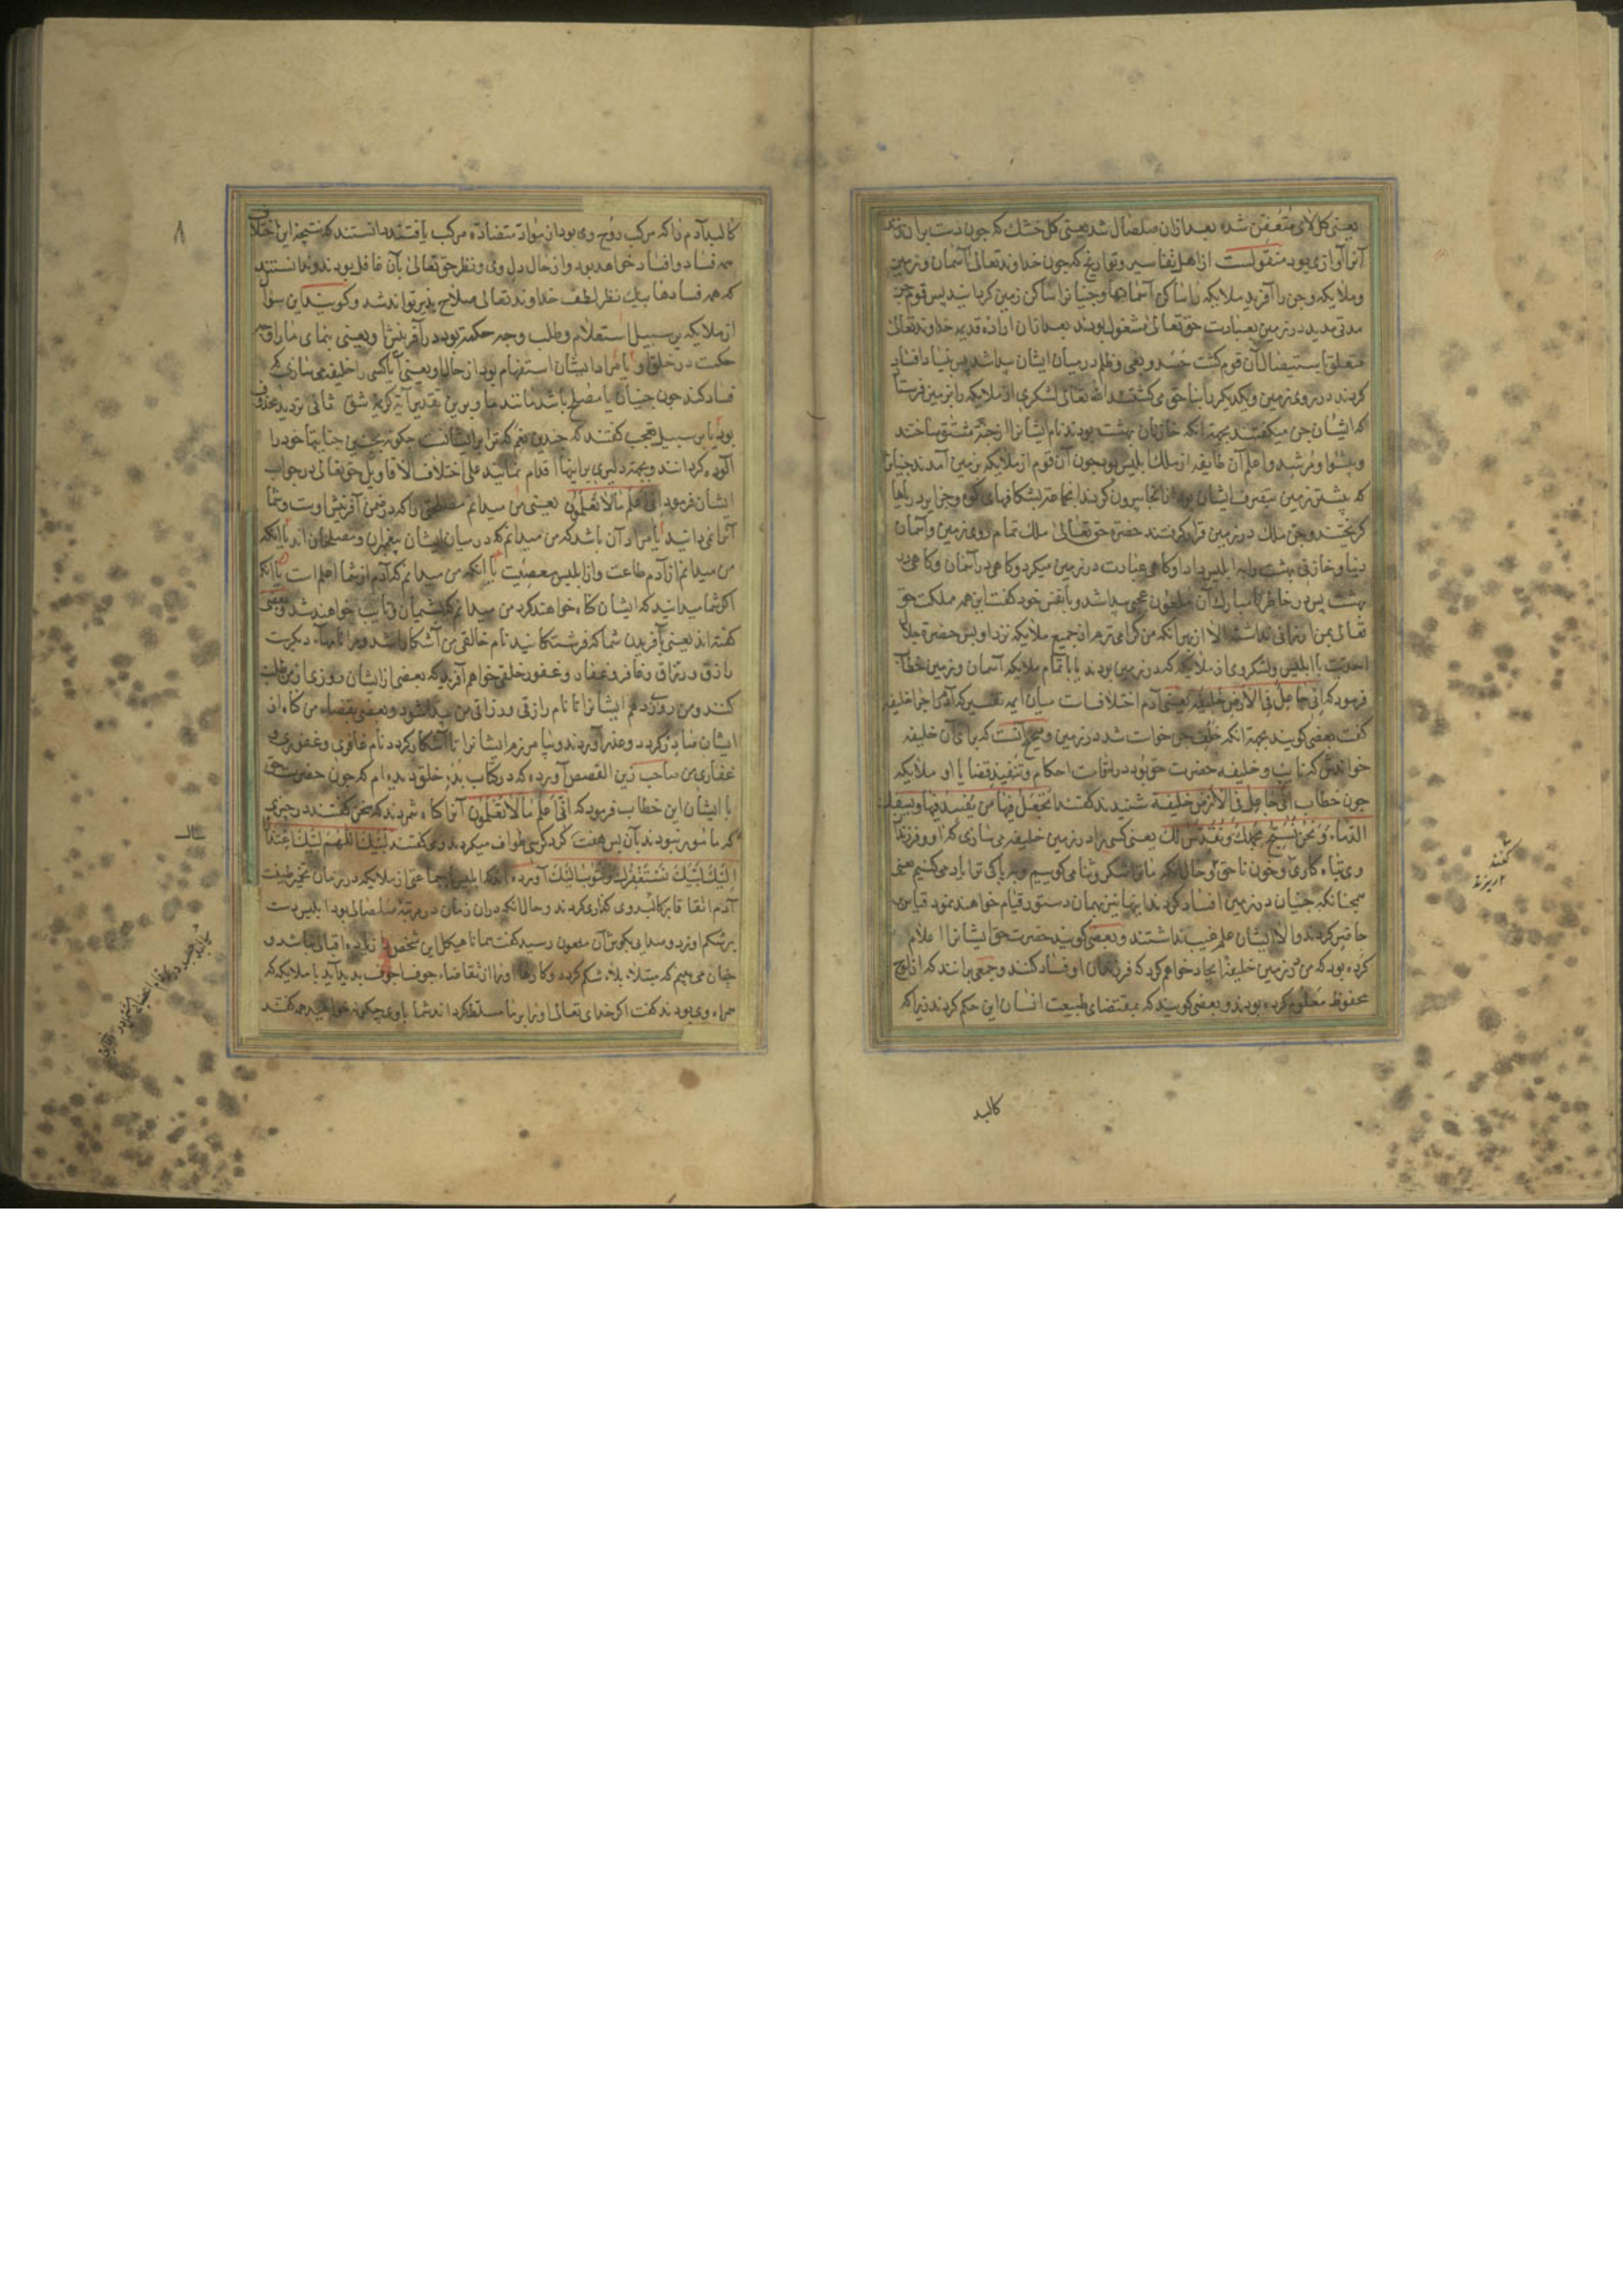 یعنی کل لای متعفن شده بعد ازان صلصال شد یعنی کل خشک که چون دست بران زنند
آنرا آوازی بود منقولست از اهل تفاسیر و تواریخ که چون خداوند تعالی آسمان و زمین
و ملایکه و جن را آفرید ملایکه را ساکن آسمانها و جنیانرا ساکن زمین کردانید پس قوم جن
مدتی مدید در زمین بعبادت حق تعالی مشغول بودند بعد ازان اراده قدیمه خداوند تعالی
متعلق باستیصال آن قوم کشت حسد و بغی و ظلم در میان ایشان پیدا شد پس بنیاد افساد
کردند در روی زمین و یکدیکر را بناحق می کشتند الله تعالی لشکری از ملایکه را بزمین فرستاد
که ایشان جن میکفتند بجهة انکه خازنان بهشت بودند نام ایشانرا از جنت مشتق ساختند
و پیشوا و مرشد و اعلم آن طایفه از ملک ابلیس بود چون آن قوم از ملایکه بزمین آمدند جنیانرا
که پیشتر زمین بتصرف ایشان بود از انجا بیرون کردند انجماعت بشکافهای کوه و جزایر دریاها
کریختند و جن ملک در زمین قرار کرفتند حضرت حق تعالی ملک تمام روی زمین و آسمان
دنیا و خازنی بهشت را به ابلیس داد او کاهی عبادت در زمین میکرد و کاهی در آسمان و کاهی در
بهشت پس در خاطر نامبارک آن ملعون عجبی پیدا شد و با نفس خود کفت این همه مملکت حق
تعالی بمن ارزانی نداشت الا از بهر انکه من کرامی ترم از جمیع ملایکه نزد او پس حضرت جلال
احدیت با ابلیس و لشکر وی از ملایکه که در زمین بودند یا با تمام ملایکه آسمان و زمین خطاب
فرمود که انی جاعل فی الارض خلیفة یعنی آدم اختلافست میان ایمه تفسیر که آدم را چرا خلیفه
کفت بعضی کویند بجهة انکه خلف جن خواست شد در زمین و صحیح آنست که برای آن خلیفه
خواندش که نایب و خلیفه حضرت حق بود در اقامت احکام و تنفیذ قضایا او ملایکه
چون خطاب انی جاعل فی الارض خلیفة شنیدند کفتند اتجعل فیها من یفسد فیها و یسفک
الدماء و نحن نسبح بحمدک و نقدس لک یعنی کسی را در زمین خلیفه می سازی که او و فرزندان
وی تباه کاری و خون ناحق و حال انکه ما ترا شکر و ثنا می کوییم و بپاکی ترا یاد می کنیم یعنی
همچنانکه جنیان در زمین افساد کردند اینها نیز بهمان دستور قیام خواهند نمود قیاس
حاضر کردند والا ایشان علم غیب نداشتند و بعضی کویند حضرت حق ایشانرا اعلام
کرده بود که من در زمین خلیفه ایجاد خواهم کرد که فرزندان او فساد کنند و جمعی برانند که از لوح
محفوظ معلوم کرده بودند و بعضی کویند که بمقتضای طبیعت انسان این حکم کردند زیرا که
کنند
و بریزند
کالبد
۸
کالبد آدم را که مرکب روح وی بود از مواد متضاده مرکب یافتند دانستند که نتیجه این اختلاف
همه فساد و افساد خواهد بود و از حال دل وی و نظر حق تعالی بآن غافل بودند و ندانستند
که همه فسادها بیک نظر لطف خداوند تعالی صلاح پذیر تواند شد و کویند این سوال
از ملایکه بر سبیل استعلام و طلب وجه حکمت بود در آفرینش او یعنی بنمای ما را وجه
حکمت در خلق او یا مراد ایشان استفهام بود از حال او یعنی آیا کسی را خلیفه می سازی که
فساد کند چون جنیان یا مصلح باشد مانند ما و برین تقدیر آیه کریمه شق ثانی تردید محذوف
بود یا بر سبیل تعجب کفتند که چندین نعم که ترا بر ایشانست چکونه بچنین جنایتها خود را
آلوده کردانند و بچه دلیری برینها اقدام نمایند علی اختلاف الاقاویل حق تعالی در جواب
ایشان فرمود انی اعلم مالا تعلمون یعنی من میدانم مصلحتی را که در ضمن آفرینش اوست و شما
آنرا نمی دانید یا مراد آن باشد که من میدانم که در میان ایشان پیغمبران و مصلحان اند یا انکه
من میدانم از آدم طاعت و از ابلیس معصیت یا انکه من میدانم که آدم از شما اعلم است یا انکه
اکر شما میدانید که ایشان کناه خواهند کرد من میدانم که پشیمان و تایب خواهند شد و بعضی
کفته اند یعنی بآفریدن شما که فرشتکانید نام خالقی من آشکارا شد و مرا نامهاء دیکرست
رازق و رزاق و غافر و غفار و غفور خلقی خواهم آفرید که بعضی از ایشان روزی از من طلب
کنند و من روزی دهم ایشانرا تا نام رازقی و رزاقی من پیدا شود و بعضی بقضاء من کناه از
ایشان صادر کردد و عذر آورند و بیامرزم ایشانرا تا آشکار کردد نام غافری و غفوری و
غفاری من صاحب زین القصص آورده که در کتاب بدء خلق دیده ام که چون حضرت حق
با ایشان این خطاب فرمود که انی اعلم مالا تعلمون آنرا کناه شمردند که سخن کفتند در چیزی
که مامور نبودند بآن پس هفت کرد کرسی طواف میکردند و می کفتند لبیک اللهم لبیک اعتذارا
الیک لبیک نستغفرک و نتوب الیک آورده اند که ابلیس با جماعتی از ملایکه در زمان تخمیر طینت
آدم اتفاقا بر کالبد وی کذاری کردند و حال انکه دران زمان در مرتبه صلصالی بود ابلیس دست
بر شکم او زد و صدایی بکوش آن ملعون رسید کفت همانا هیکل این شخص را زیاده اقبالی نباشد و
چنان می بینم که مبتلا ببلاء شکم کردد و کارها او را از تقاضاء جوفا جوف بدید آید با ملایکه که
همراه وی بودند کفت اکر خدای تعالی او را بر ما مسلط کرداند شما با وی چکونه خواهید همه کفتند